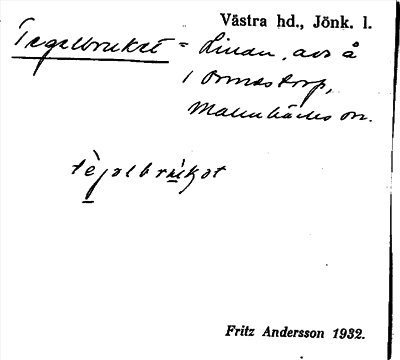 Västra hd., Jönk. l.
Tegelbruket = Linan, avs å
1 Ormestorp,
Malmbäcks sn.
tègəlbrùkət
Fritz Andersson 1932.